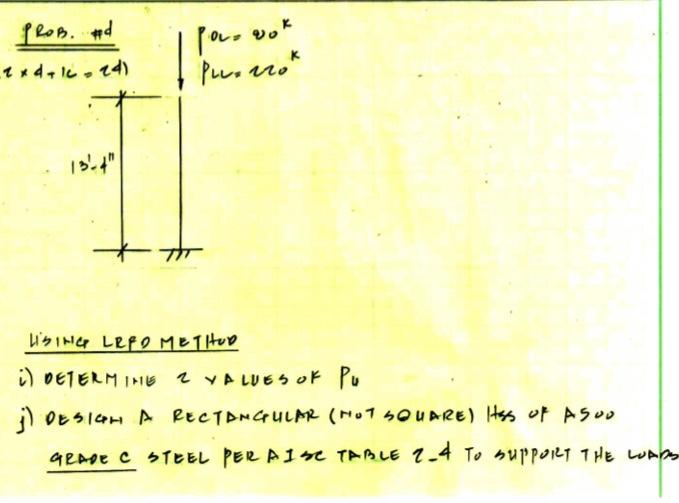 PROB. #4
2 x 4 + 16 = 24)
PDL =
PLL = 220ᴷ
13'-4"
USING LRFD METHOD
i) DETERMINE 2 VALUES OF Pu
j) DESIGN A RECTANGULAR (NOT SQUARE) HSS OF A500
GRADE C STEEL PER AISC TABLE 2-4 TO SUPPORT THE LOADS